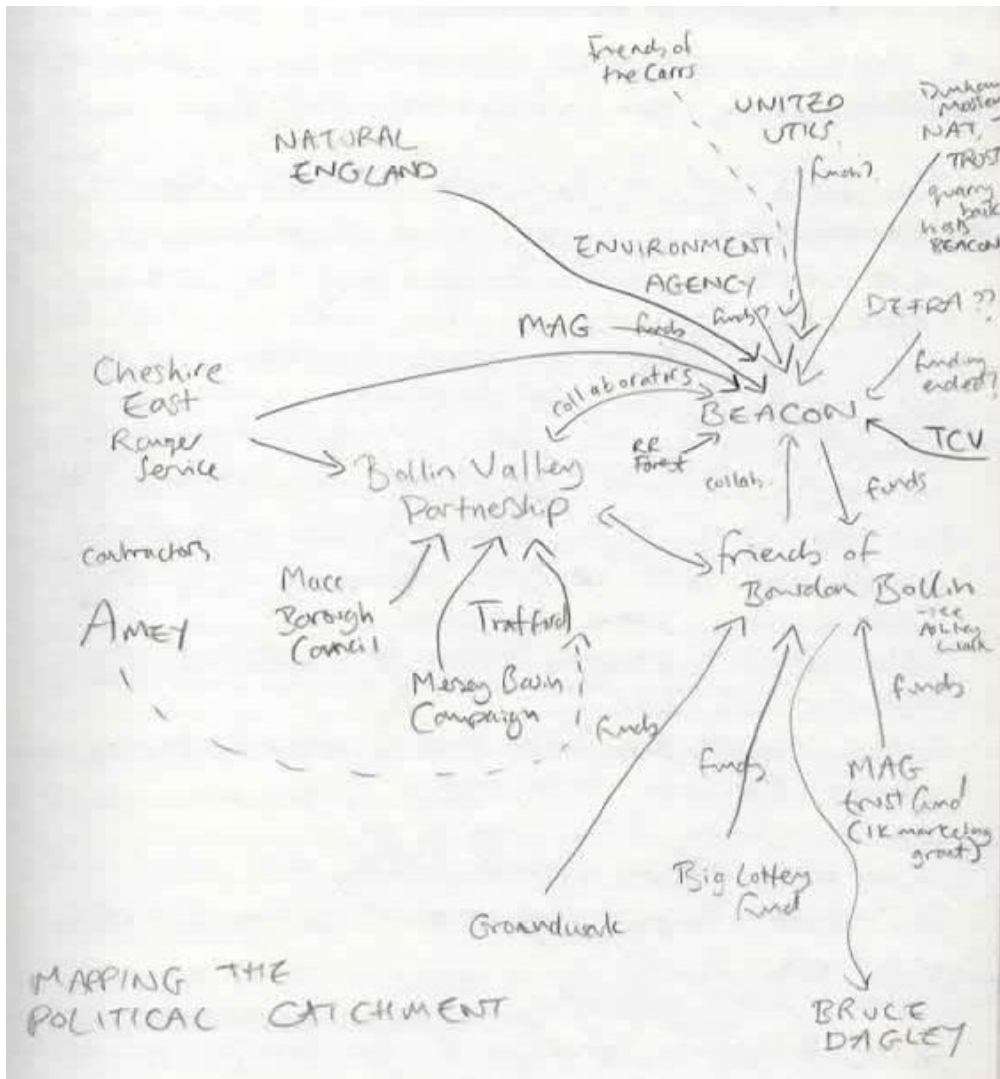 Friends of
the Carrs
UNITED
UTILS
funds?
Dunham
Massey
NAT.
TRUST
quarry
bank
hosts
BEACON
NATURAL
ENGLAND
ENVIRONMENT
AGENCY
funds?
DEFRA ??
funding
ended?
MAG
funds
Cheshire
East
Ranger
Service
collaborators
BEACON
TCV
RR
Forest
Bollin Valley
Partnership
collab.
funds
contractors
AMEY
Macc.
Borough
Council
Trafford
Mersey Basin
Campaign
friends of
Bowdon Bollin
funds
funds
funds
MAG
trust fund
(1K marketing
grant)
Big Lottery
fund
Groundwork
MAPPING THE
POLITICAL CATCHMENT
BRUCE
DAGLEY